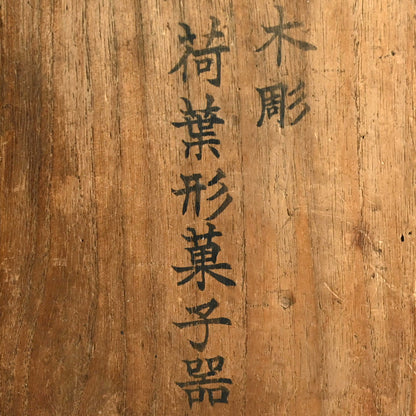 木彫
荷葉形菓子器